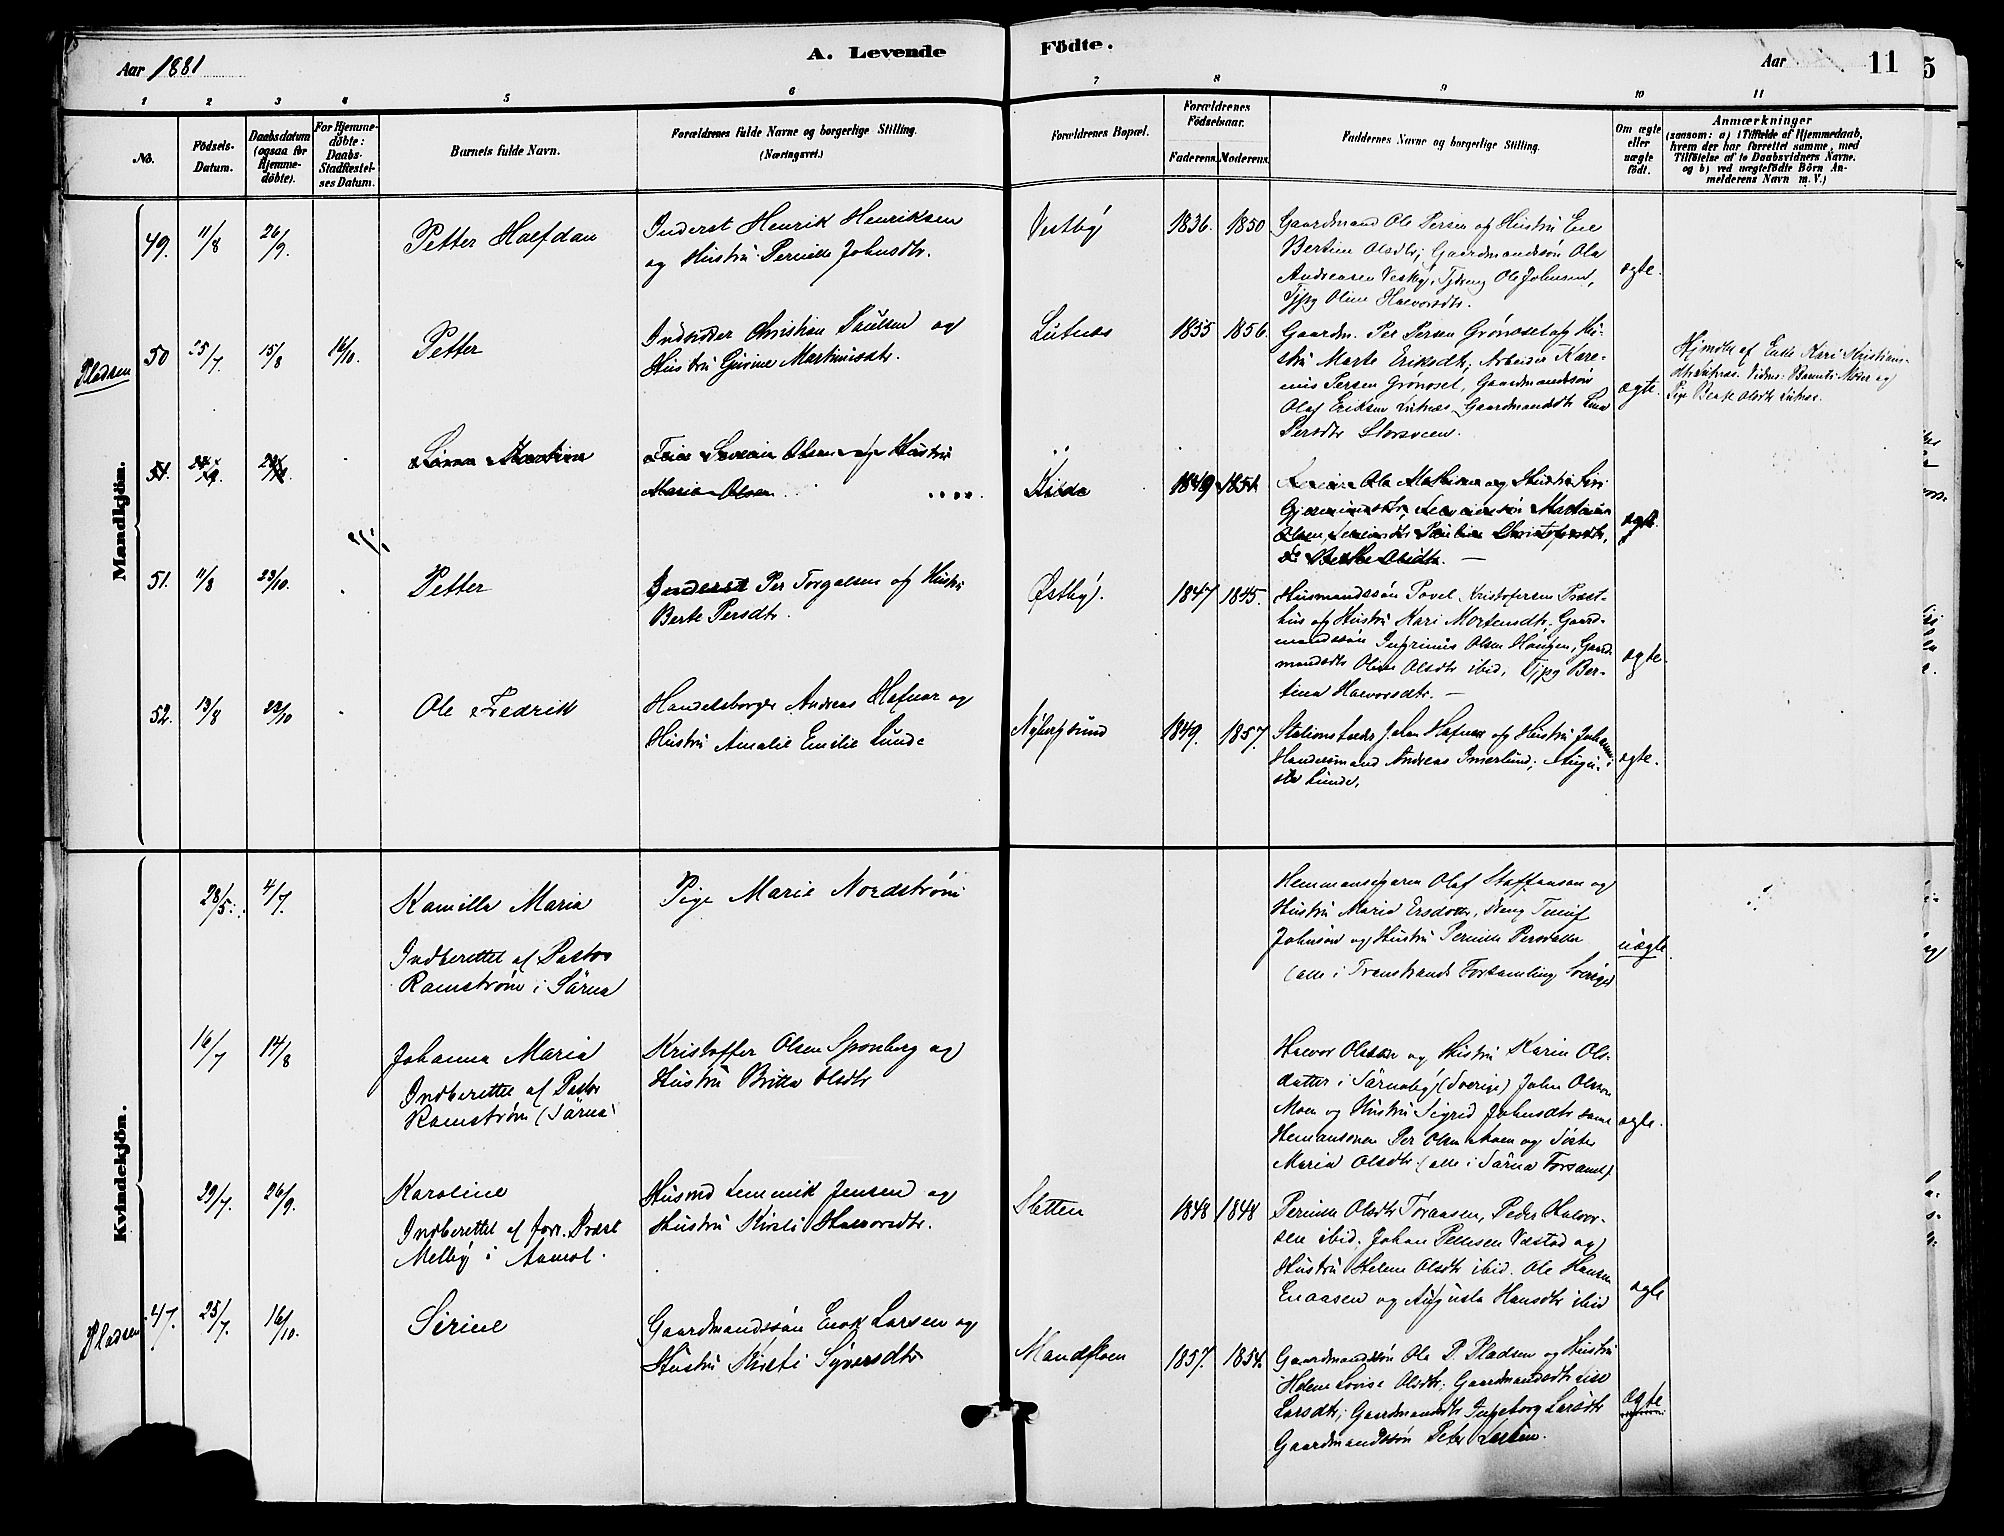 Aar 1881
A. Levende
Födte.
Aar
11
5
1
2
3
4
5
6
7
8
9
10
11
No.
Födsels-
Datum.
Daabsdatum
(ogsaa for
Hjemme-
döbte).
For Hjemme-
döbte:
Daabs-
Stadfæstel-
ses Datum.
Barnets fulde Navn.
Forældrenes fulde Navne og borgerlige Stilling.
(Næringsvei.)
Forældrenes Bopæl.
Forældrenes
Födselsaar.
Faderens.
Moderens.
Faddernes Navne og borgerlige Stilling.
Om ægte
eller
uægte
födt.
Anmærkninger
(saasom: a) i Tilfælde af Hjemmedaab,
hvem der har forrettet samme, med
Tilföielse af to Daabsvidners Navne.
og b) ved uægtefödte Börn An-
melderens Navn m. V.)
Mandkjön.
49.
11/8
26/9.
Petter Halfdan
Inderst Henrik Henriksen
og Hustru Pernille Johnsdtr.
Vestby
1836.
1850
Gaardmand Ole Persen og Hustru Ene
Bertine Olsdtr; Gaardmandssøn Ola
Andreasen Vestby, Tjdreng Ole Johnsen,
Tjpg Oline Halvorsdtr.
ægte.
Pladsen
50
25/7
15/8
16/10.
Petter
Indsidder Christian Paulsen og
Hustru Gurine Martinusdtr.
Lutnes
1855
1856.
Gaardm. Per Persen Grønoset og Hu-
stru Marte Eriksdtr, Arbeider Kare-
nis Persen Grønoset, Gaardmandssøn
Olaf Eriksen Lutnæs, Gaardmandsdtr Lina
Persdtr Storsveen.
ægte.
Hjmdbt af Enke Kari Kristians-
dtr Lutnæs. Vidner: Barnets Moder og
Pige Berte Olsdtr Lutnes.
51.
Olsen og Hustru
Maria Olsen
Kilde
1849
1851
Ola Mathisen og Hustru Siri
Olsen, Pauline Christofersdtr,
Berthe Olsdtr. —
ægte
51.
11/8
23/10.
Petter
Inderst Per Torgalsen og Hustru
Berte Persdtr.
Østby.
1847
1845.
Husmandssøn Povel Kristofersen Præst-
hus og Hustru Kari Mortensdtr. Gaard-
mandssøn Ingrinus Olsen Haugen, Gaard-
mandsdtr Oline Olsdtr ibid, Tjpg Ber-
tina Halvorsdtr. —
ægte.
52.
13/8
23/10
Ole Fredrik
Handelsborger Andreas Hafnor og
Hustru Amalie Emilie Lunde
Nybergsund
1849.
1857.
Stationsholder Johan Hafnor og Hustru Johanne;
Handelsmand Andreas Imerlund; Augu-
sta Lunde.
ægte.
Kvindekjön.
28/5.
4/7.
Kamilla Maria
Indberettet af Pastor
Ramstrøm i Särna
Pige Marie Nordstrøm
Hemmansegaren Olaf Staffanson og
Hustru Maria Ersdotter, Dreng
Johnson og Hustru Pernille Persdatter
(alle i Transtrands Forsamling Sverige)
uægte
16/7
14/8
Johanna Maria
Indberettet af Pastor
Ramstrøm (Särna)
Kristoffer Olsen Sponberg og
Hustru Britta Olsdtr
Halvor Olsson og Hustru Karin Ols-
datter i Särnaby (Sverige) John Olsson
Moen og Hustru Sigrid Johnsdtr samt
Hemansonen Per Olsen Moen og Søster
Maria Olsdtr. (alle i Särna Forsaml.)
ægte.
29/7.
26/9.
Karoline
Indberettet af forr. Præst
Melby i Aamot.
Husmd Lemmik Jensen og
Hustru Kirsti Halvorsdtr.
Sletten
1848
1848
Pernille Olsdtr Töraasen, Peder Halvor-
sen ibid. Johan Pettersen Næstad og
Hustru Helene Olsdtr ibid. Ole Hansen
Enaasen og Augusta Hansdtr ibid
ægte
Pladsen
47.
25/7.
16/10.
Sirine
Gaardmandssøn Enok Larsen og
Hustru Kirsti Syversdtr
Mandfloen
1857.
1854.
Gaardmandssøn Ole P. Pladsen og Hustru
Helene Lovise Olsdtr; Gaardmandsdtr Lise
Larsdtr; Gaardmandsdtr Ingeborg Larsdtr
Gaardmandssøn Peter Larsen.
ægte